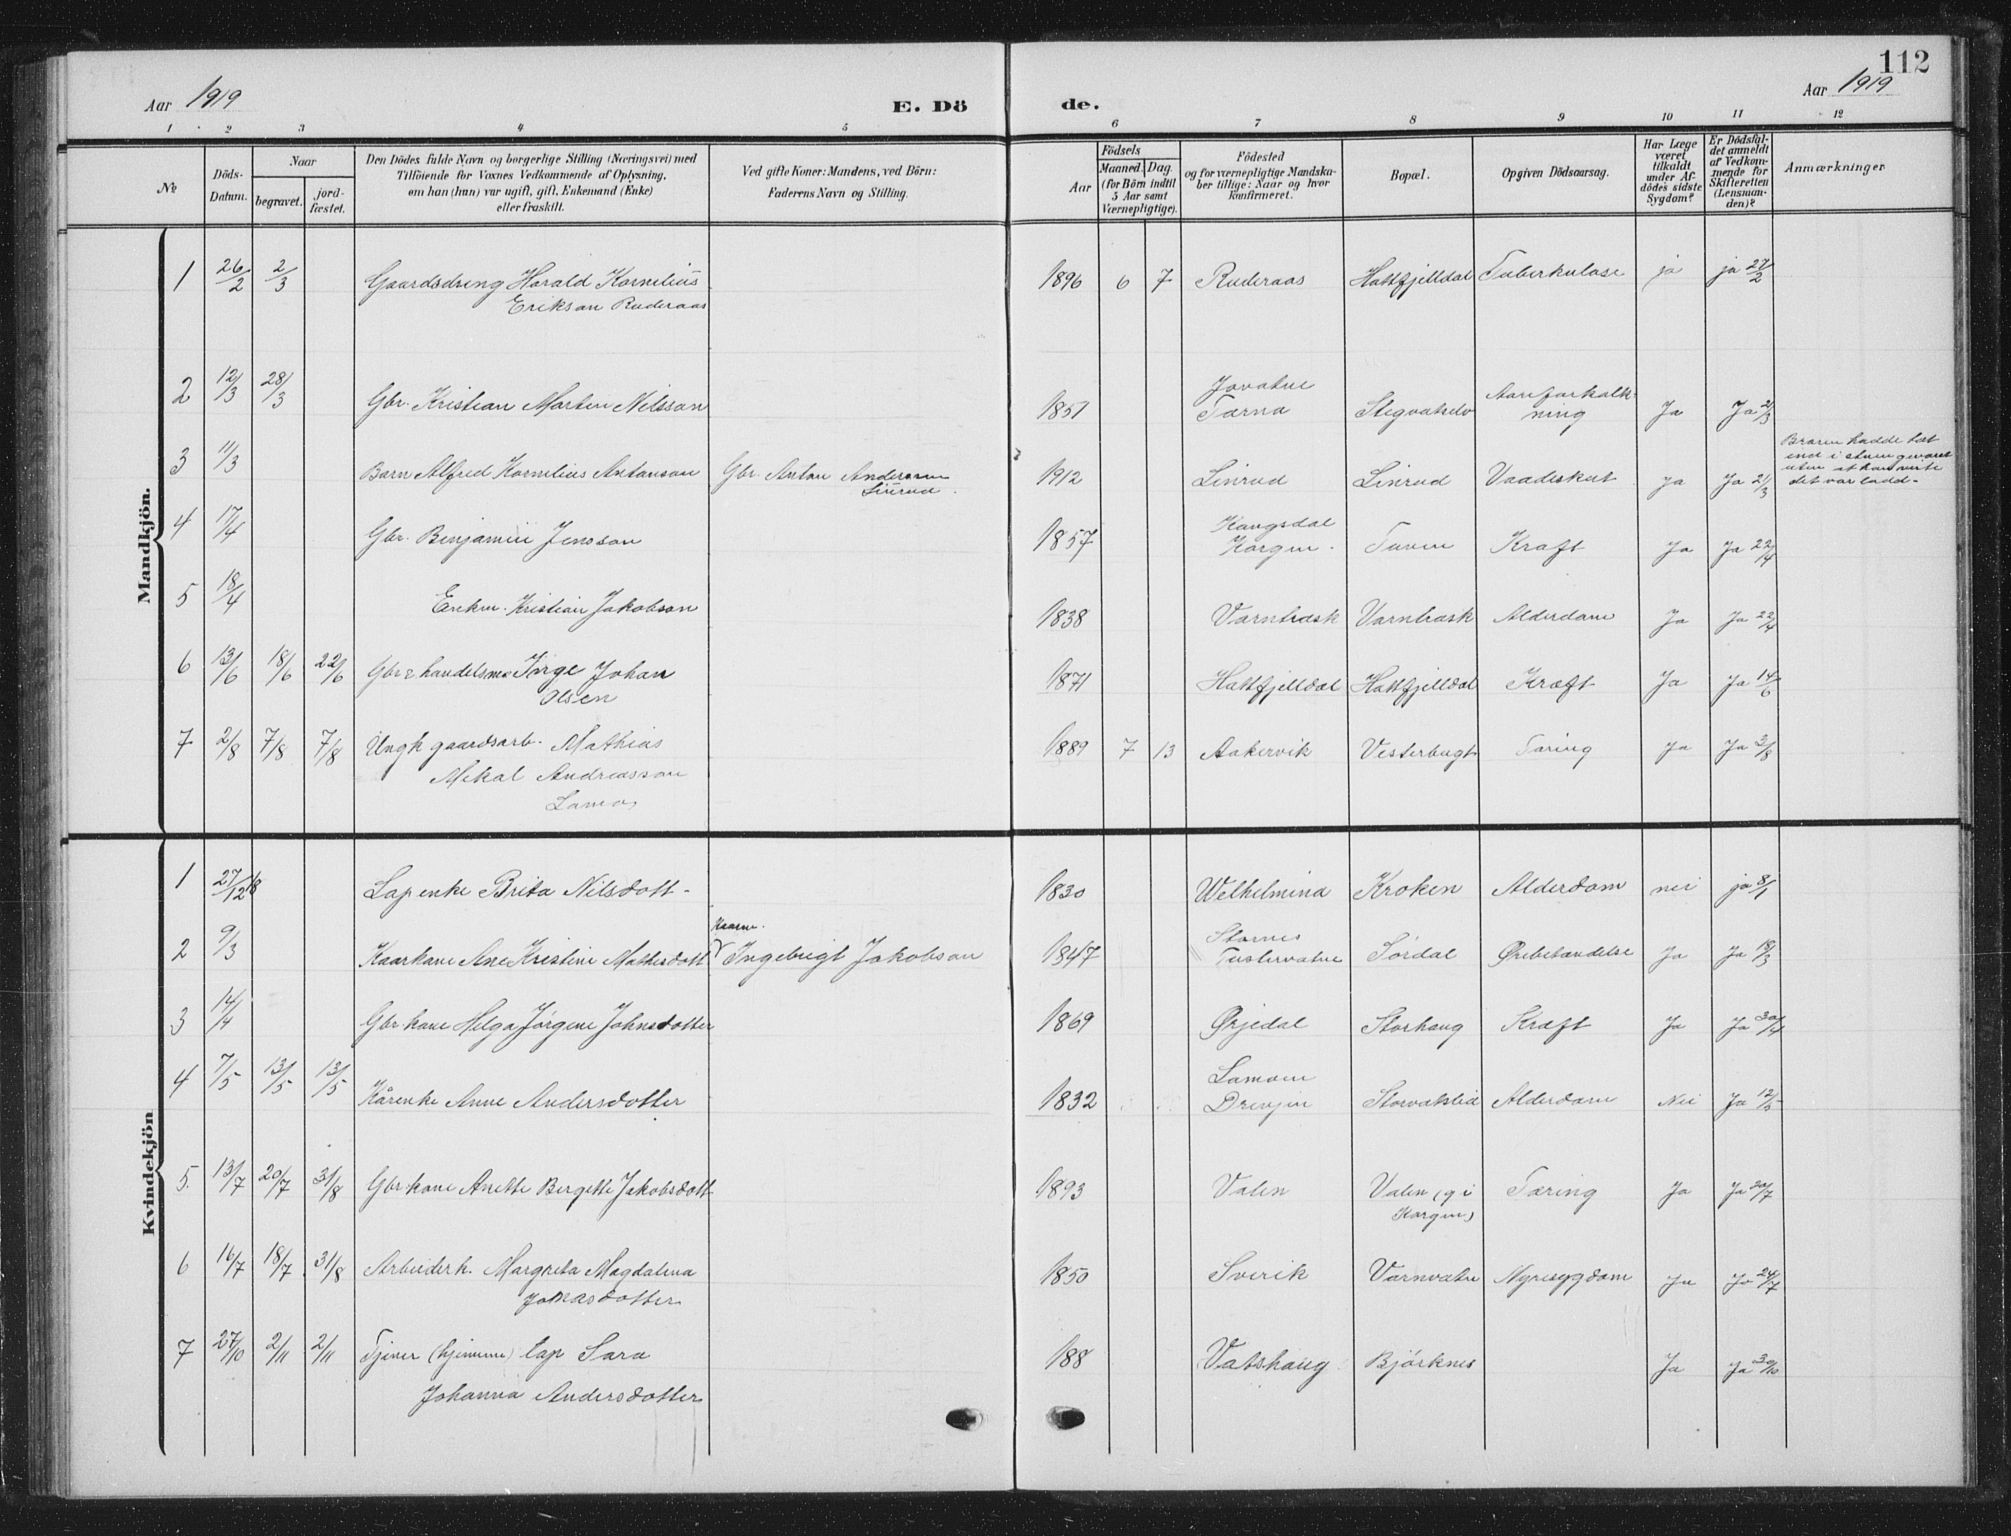 112
Aar 1919
E. Dö
de.
Aar 1919
1 2 3 4 5 6 7 8 9 10 11 12
No
Döds-
Datum.
Naar
begravet.
jord-
fæstet.
Den Dödes fulde Navn og borgerlige Stilling (Næringsvei) med
Tilföiende for Voxnes Vedkommende af Oplysning,
om han (hun) var ugift, gift, Enkemand (Enke)
eller fraskilt.
Ved gifte Koner: Mandens, ved Börn:
Faderens Navn og Stilling.
Födsels
Aar
Maaned. Dag.
(for Börn indtil
5 Aar samt
Værnepligtige).
Födested
og for værnepligtige Mandska-
ber tillige: Naar og hvor
konfirmeret.
Bopæl.
Opgiven Dödsaarsag.
Har Læge
været
tilkaldt
under Af-
dödes sidste
Sygdom?
Er Dödsfal-
det anmeldt
af Vedkom-
mende for
Skifteretten
(Lensman-
den)?
Anmærkninger
Mandkjön.
1 26/2 2/3 Gaardsdreng Harald Kornelius
Erikson Ruderaas
1896 6 7 Ruderaas Hattfjelldal Tuberkulose ja ja 27/2
2 12/3 28/3 Gbr. Kristian Marten Nilsson
1851 Jovatne
Tærna Stegvatselv Aareforkalk-
ning Ja Ja 21/3
3 11/3 Barn Alfred Kornelius Antonson Gbr. Anton Anderson
Linrud.
1912 Linrud Linrud Vaadeskut ja Ja 21/3
Broren hadde tat
end i stuen geværet
uten at han viste
det var ladd.
4 17/4 Gbr. Benjamin Jensson
1857 Kangsdal
Korgen. Tuven Kræft Ja Ja 22/4
5 18/4 Enkm. Kristian Jakobson
1838 Varntræsk Varntræsk Alderdom Ja Ja 22/4
6 13/6 18/6 22/6 Gbr & handelsm. Inge Johan
Olsen
1871 Hattfjelldal Hattfjelldal Kræft Ja Ja 14/6
7 2/8 7/8 7/8 Ungk gaardsarb. Mathias
Mikal Andreasson
1889 7 13 Aakervik Vesterbugt Tæring Ja Ja 3/8
Kvindekjön
1 27/12 18 Lapenke Brita Nilsdott-
1830 Welhelmina Kroken Alderdom nei ja 8/1
2 9/3 Kaarkone Ane Kristine Mathisdott Kaarm.
Ingebrigt Jakobson
1847 Stornes
Tustervatne Sördal Ørebetændelse Ja Ja 18/3
3 14/4 Gbr kone Helga Jörgine Johnsdotter
1869 Ørjedal Storhaug Kræft Ja Ja 30/4
4 7/5 13/5 13/5 Kårenke Anne Andersdotter
1832 Lamoen
Drevjen Storvatslid Alderdom Nei Ja 12/5
5. 13/7 20/7 31/8 Gbr kone Anette Bergette Jakobsdott
1893 Valen Valen (g i
Korgen) Tæring Ja Ja 20/7
6 16/7 18/7 31/8 Arbeiderk. Margreta Magdalena
Jonasdotter
1850 Sverik Varnvatne Nyresygdom Ja Ja 24/7
7 27/10 2/11 2/11 Tjener (hjemme) lap Sara
Johanna Andersdotter
188 Vatshaug Björknes Ja Ja 30/10